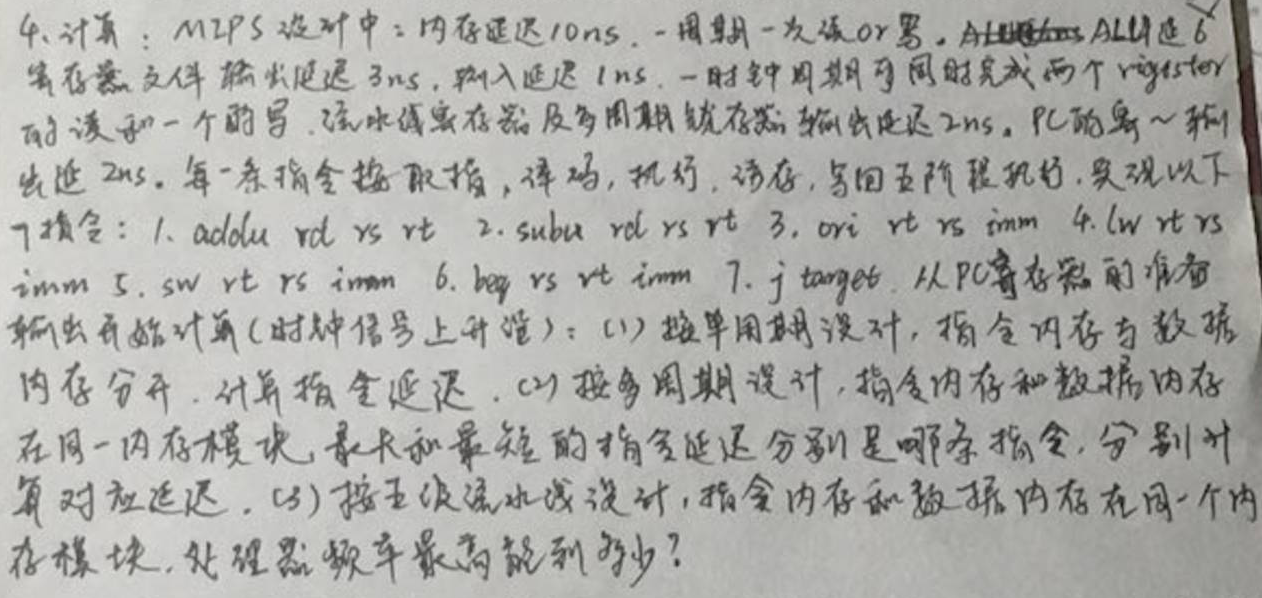 4、计算：MIPS设计中：内存延迟10ns，一周期一次读or写。ALU延6
寄存器文件输出延迟3ns，输入延迟1ns，一时钟周期可同时完成两个rigister
的读和一个的写，流水线寄存器及多周期锁存器输出延迟2ns。PC的写～输
出延2ns。每一条指令按取指，译码，执行，访存，写回五阶段执行，实现以下
7指令：1. addu rd rs rt 2. subu rd rs rt 3. ori rt rs imm 4. lw rt rs
imm 5. sw rt rs imm 6. beq rs rt imm 7. j target. 从PC寄存器的准备
输出开始计算(时钟信号上升沿)：(1)按单周期设计，指令内存与数据
内存分开，计算指令延迟。(2)按多周期设计，指令内存和数据内存
在同一内存模块，最长和最短的指令延迟分别是哪条指令，分别计
算对应延迟。(3)按五级流水线设计，指令内存和数据内存在同一个内
存模块，处理器频率最高能到多少？